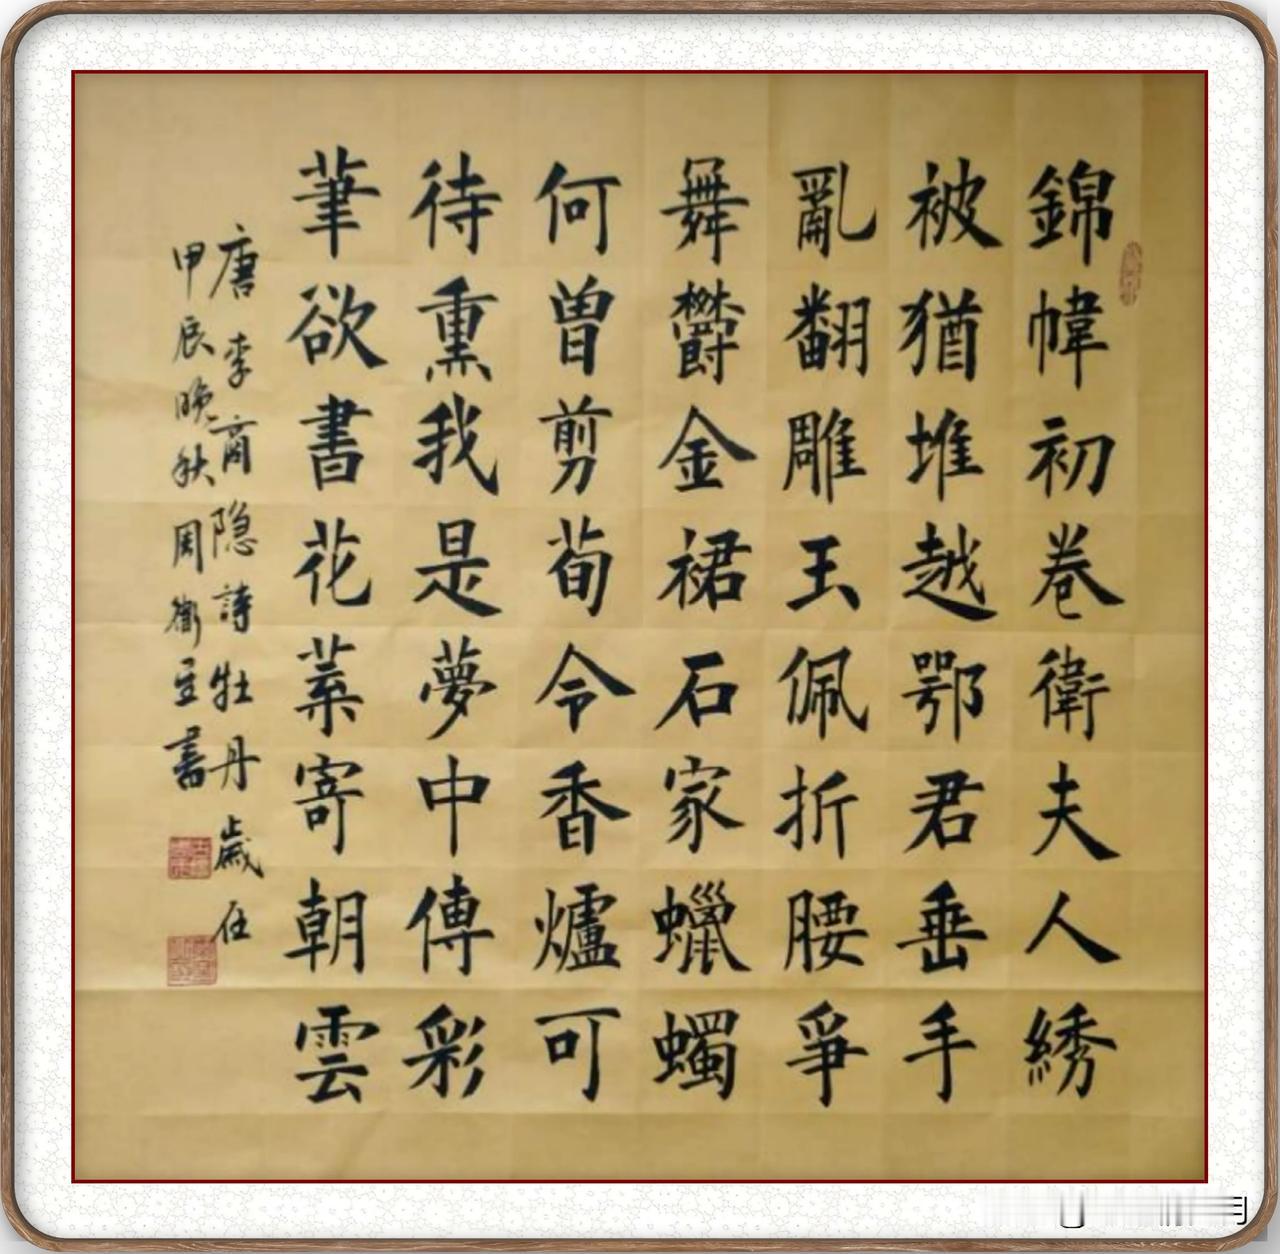 錦幃初卷衛夫人綉
被猶堆越鄂君垂手
亂翻雕玉佩折腰爭
舞鬱金裙石家蠟蠋
何曾剪荀令香爐可
待熏我是夢中傳彩
筆欲書花葉寄朝雲
唐李商隐詩牡丹歲在
甲辰晚秋周衛書